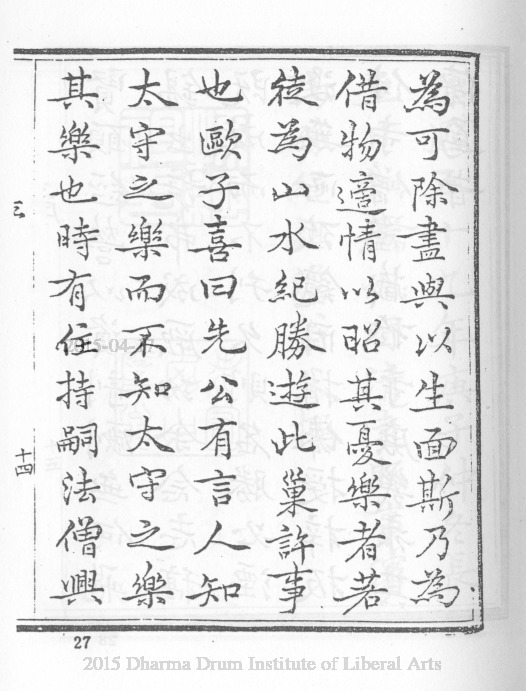 為可除盡與以生面斯乃為
借物適情以昭其憂樂者若
徒為山水紀勝遊此巢許事
也歐子喜曰先公有言人知
太守之樂而不知太守之樂
其樂也時有住持嗣法僧興
三
十四
27
2015-04-
2015 Dharma Drum Institute of Liberal Arts